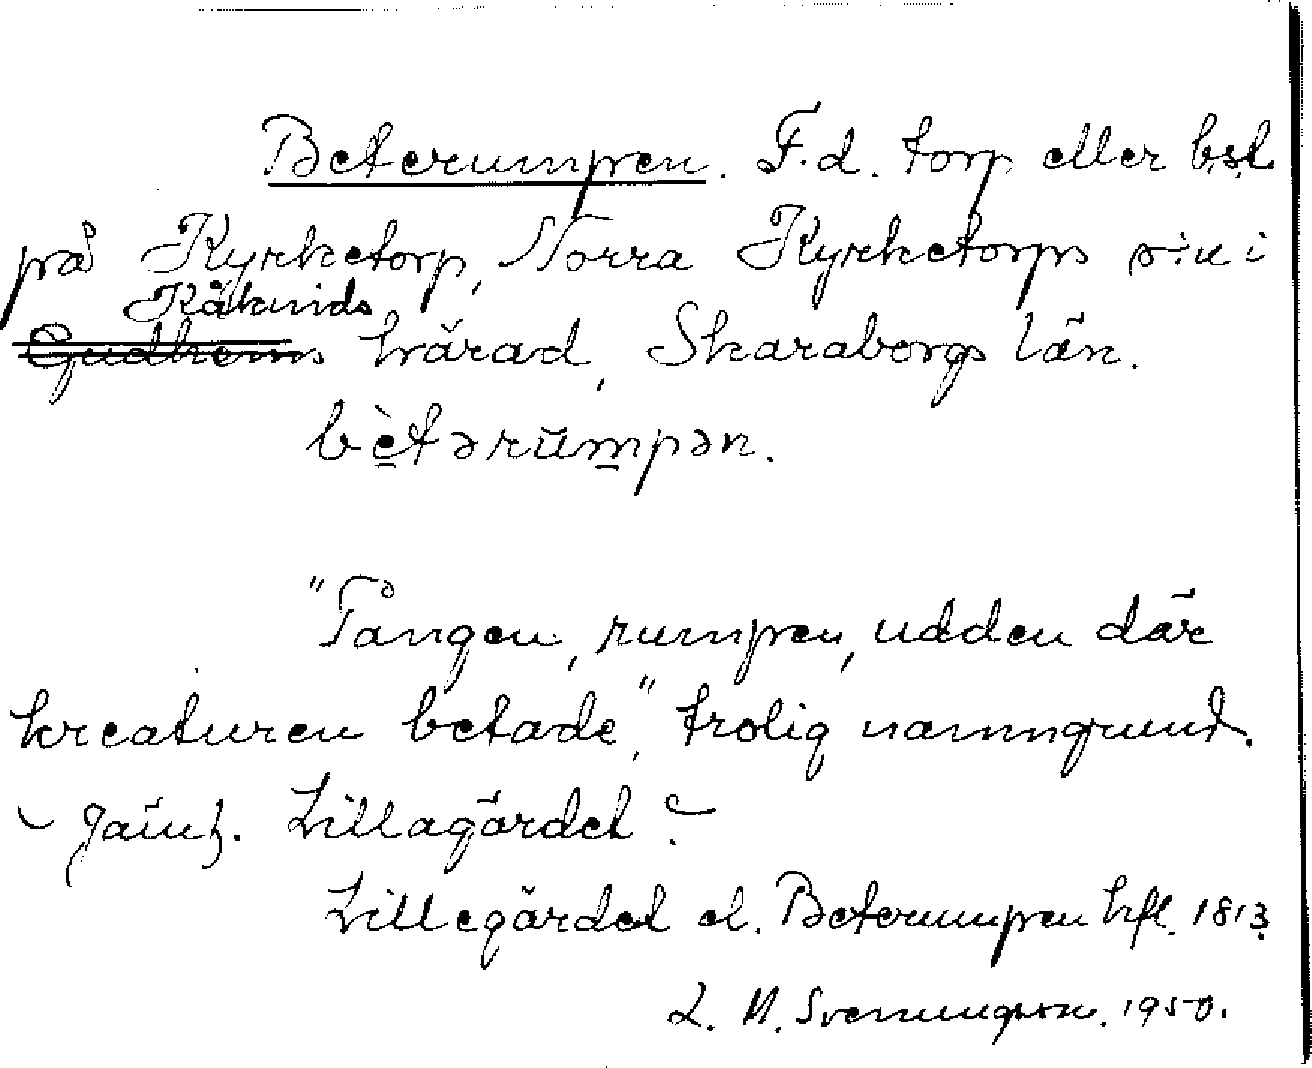 Beterumpen. F.d. torp eller bst
på Kyrketorp, Norra Kyrketorps s:n i
Kåkinds
Gudhems härad, Skaraborgs län.
bètərŭmpən.
"Tången, rumpen, udden där
kreaturen betade", trolig namngrund.
- Jämf. Lillagärdet?
Lillegärdet el. Beterumpen hfl. 1813.
L. M. Svenungsson. 1950.